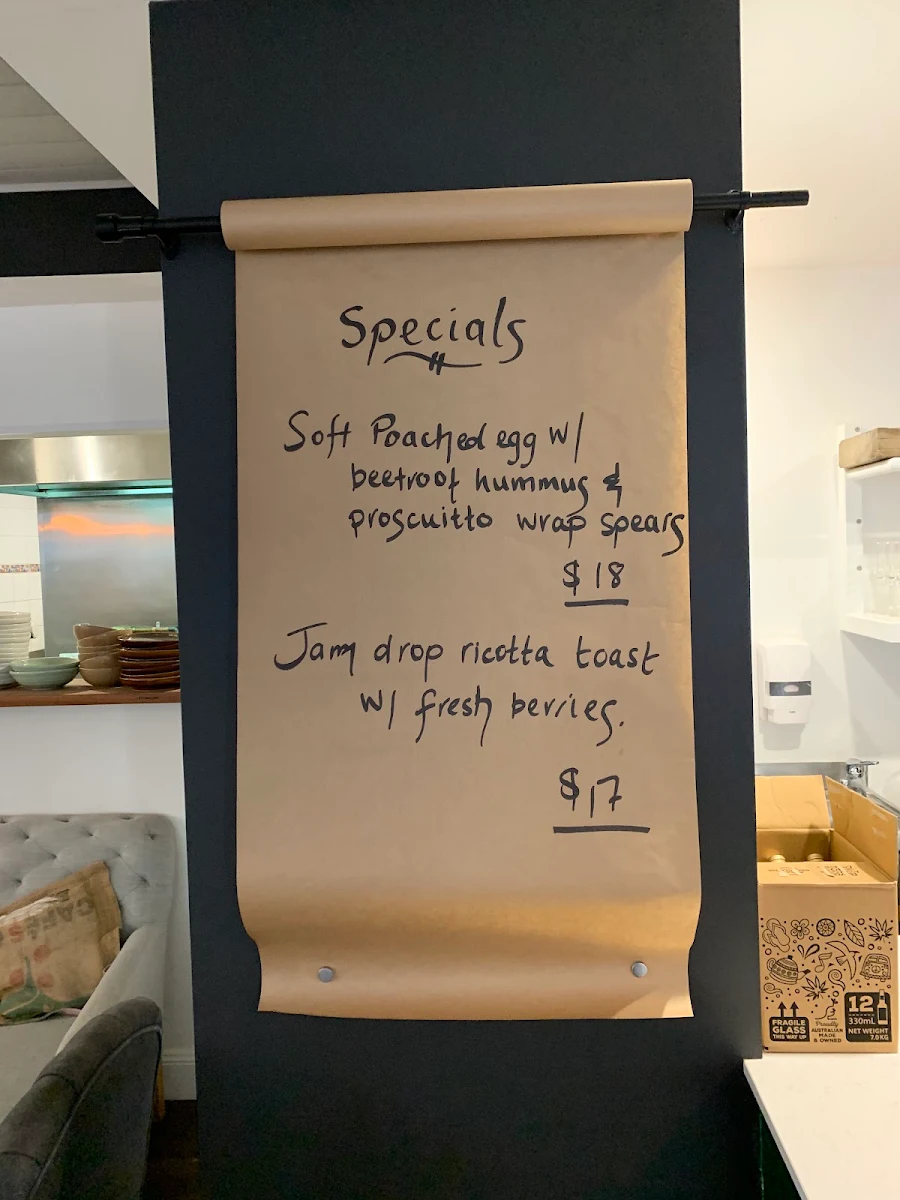 Specials
Soft Poached egg w/
beetroot hummus &
proscuitto wrap spears
$18
Jam drop ricotta toast
w/ fresh berries.
$17
CAFÉ
FRAGILE
GLASS
THIS WAY UP
Proudly
AUSTRALIAN
MADE
& OWNED
12
330mL
NET WEIGHT
7.0KG